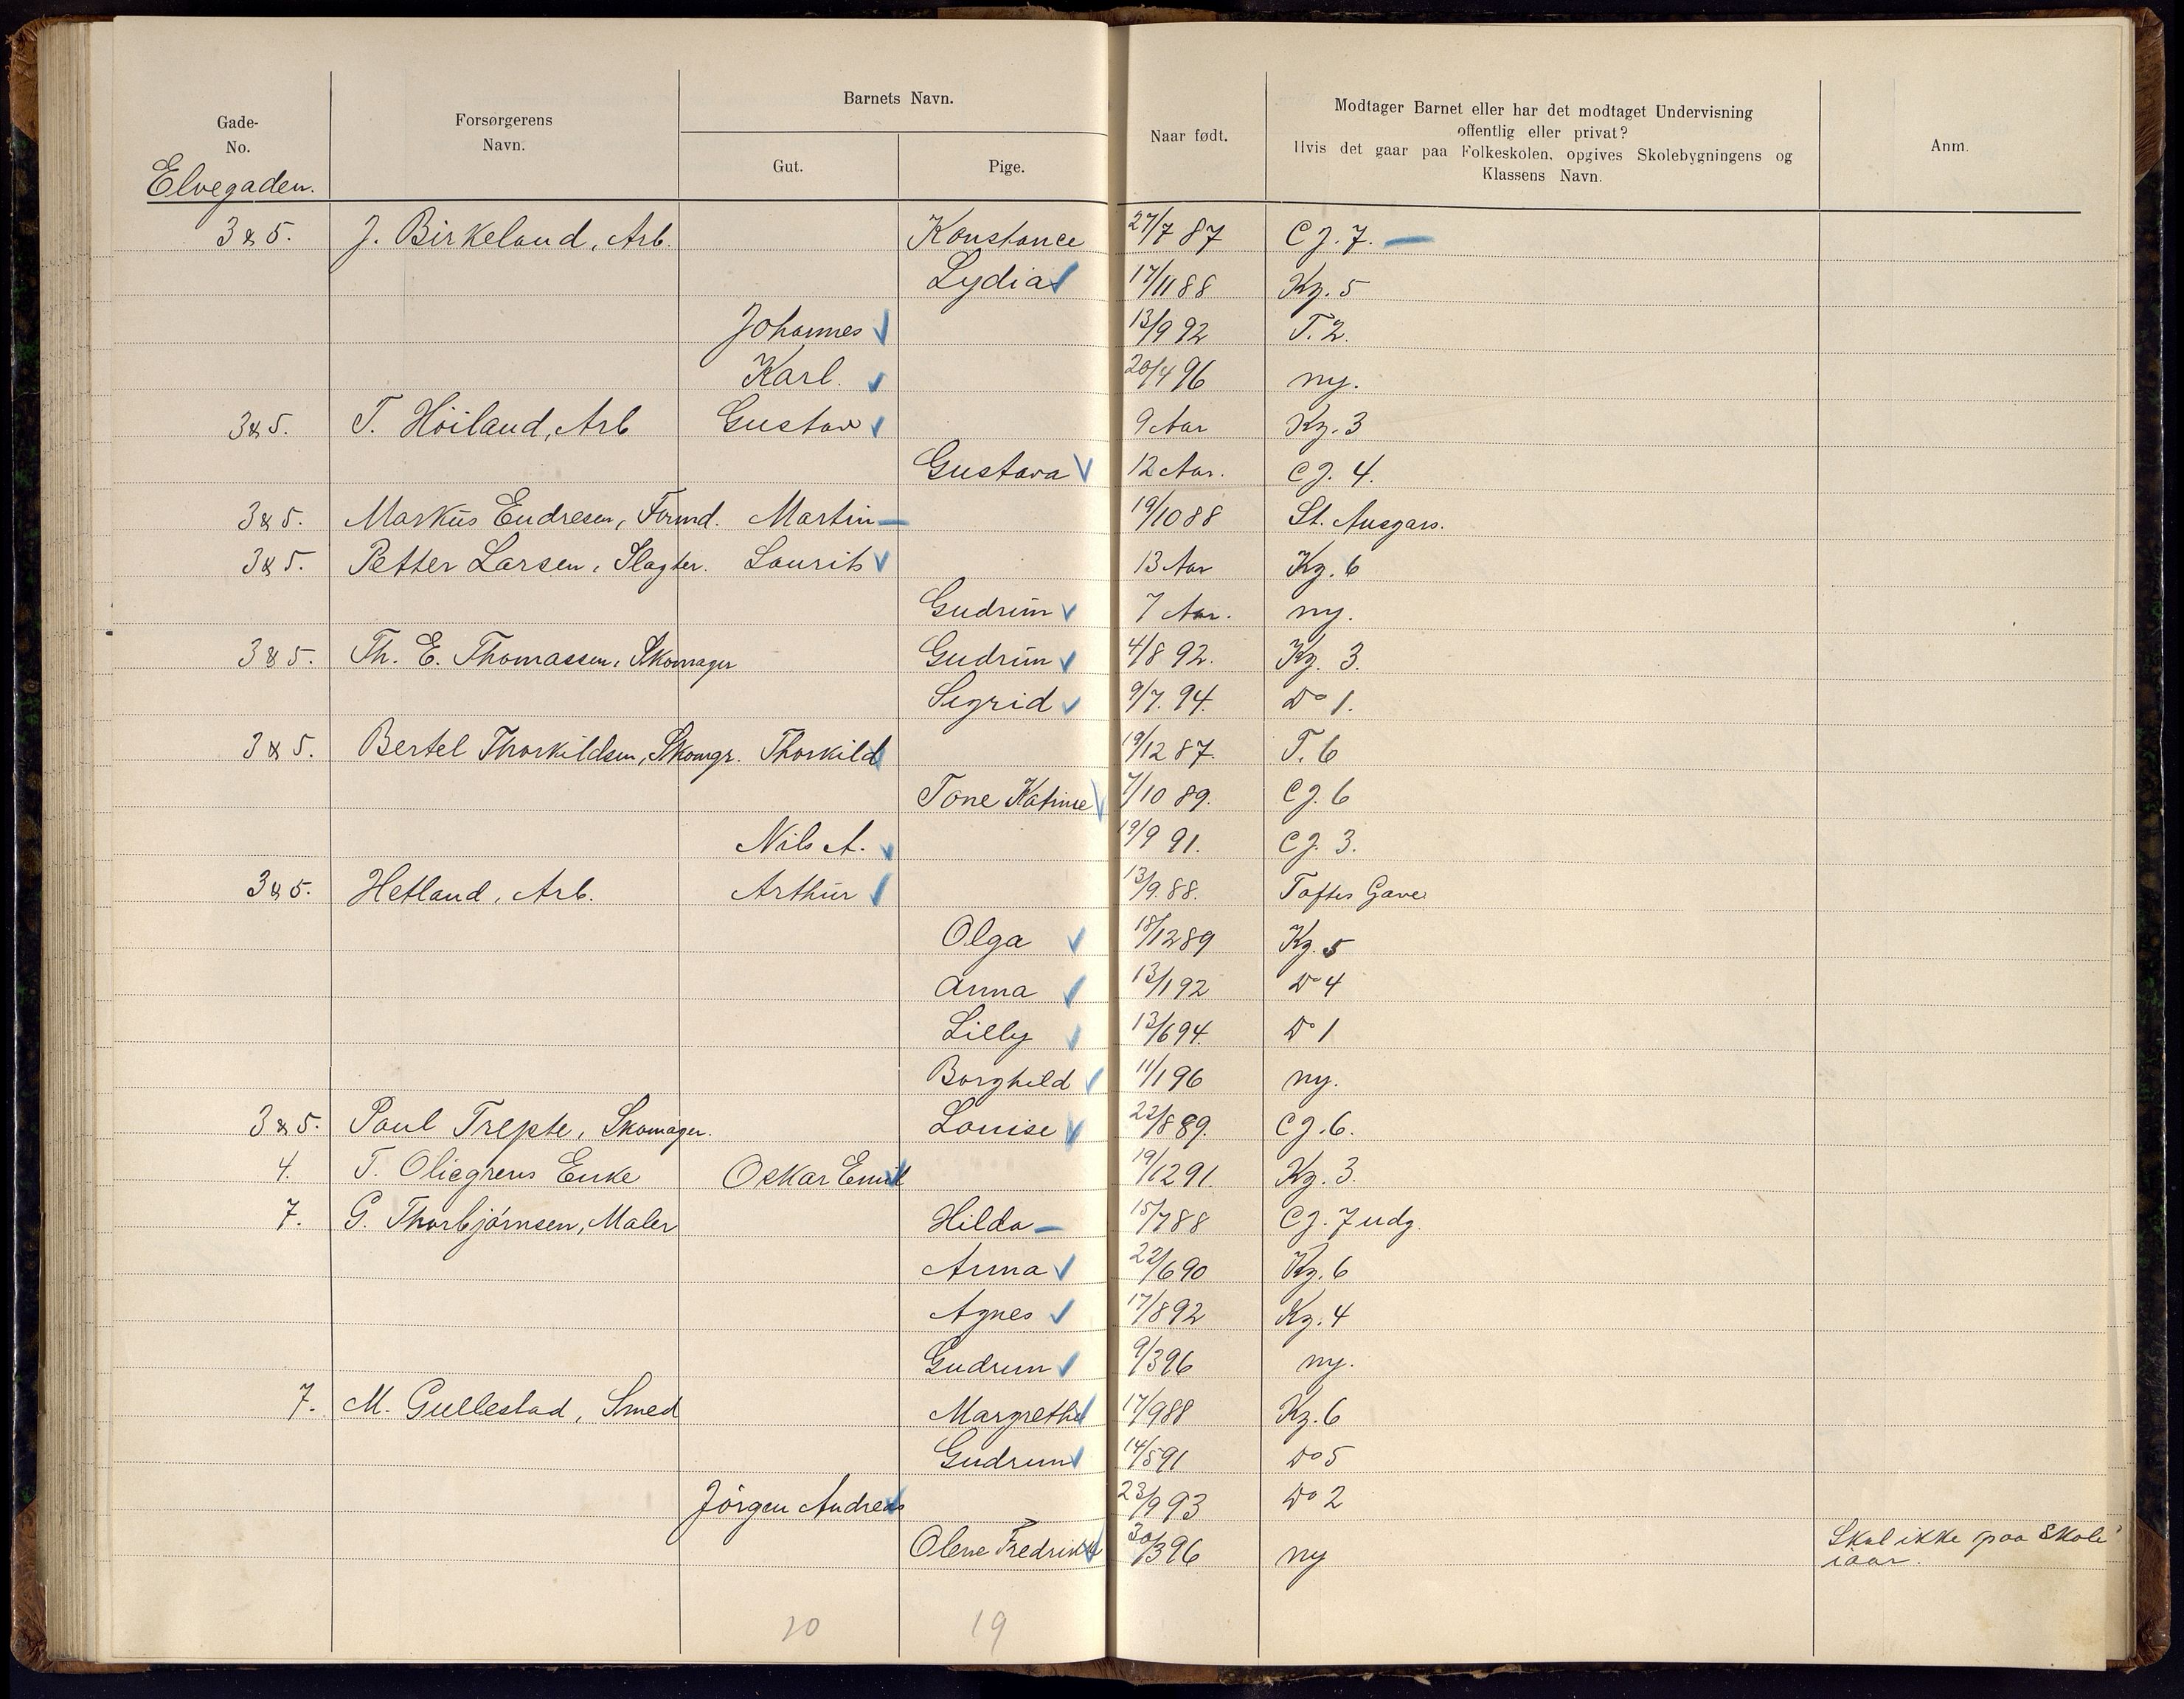 Gade-
No.
Elvegaden.
Forsørgerens
Navn.
Barnets Navn.
Gut.
Pige.
Naar født.
Modtager Barnet eller har det modtaget Undervisning
offentlig eller privat?
Hvis det gaar paa Folkeskolen, opgives Skolebygningens og
Klassens Navn.
Anm.
3&5. J. Birkeland, Arb. Konstance 27/7 87 CJ. 7. —
Lydia ✓ 17/11 88 Kg. 5
Johannes ✓ 13/9 92 T. 2.
Karl. ✓ 20/4 96 ny.
3&5. T. Höiland, Arb Gustav ✓ 9 Aar Kg. 3
Gustava ✓ 12 Aar. CJ. 4.
3&5. Markus Endresen, Formd. Martin — 19/10 88 St. Ansgars.
3&5. Petter Larsen, Slagter. Laurits ✓ 13 Aar Kg. 6
Gudrun ✓ 7 Aar. ny.
3&5. Th. E. Thomassen, Skomager Gudrun ✓ 4/8 92. Kg. 3.
Sigrid ✓ 9/7. 94. Do 1.
3&5. Bertel Thorkildsen, Skomgr. Thorkild ✓ 19/12 87. T. 6
Tone Katinie ✓ 7/10 89. CJ. 6
Nils A. ✓ 19/9 91. CJ. 3.
3&5. Hetland, Arb. Arthur ✓ 13/9. 88. Toftes Gave
Olga ✓ 18/12 89 Kg. 5
Anna ✓ 13/1 92 Do 4
Lilly ✓ 13/6 94. Do 1
Borghild ✓ 11/1 96 ny.
3&5. Paul Trepte, Skomager. Louise ✓ 22/8 89. CJ. 6.
4. T. Oliegrens Enke Oskar Emil ✓ 19/12 91. Kg. 3.
7. G. Thorbjörnsen, Maler Hilda — 15/7 88 CJ. 7 udg.
Anna ✓ 22/6 90 Kg. 6
Agnes ✓ 17/8 92 Kg. 4
Gudrun ✓ 9/3 96 ny.
7. M. Gullestad, Smed Margrethe ✓ 17/9 88 Kg. 6
Gudrun ✓ 14/5 91 Do 5
Jörgen Andreas ✓ 23/9 93 Do 2
Olene Fredrikke ✓ 30/3 96 ny Skal ikke paa Skole
iaar.
10 19